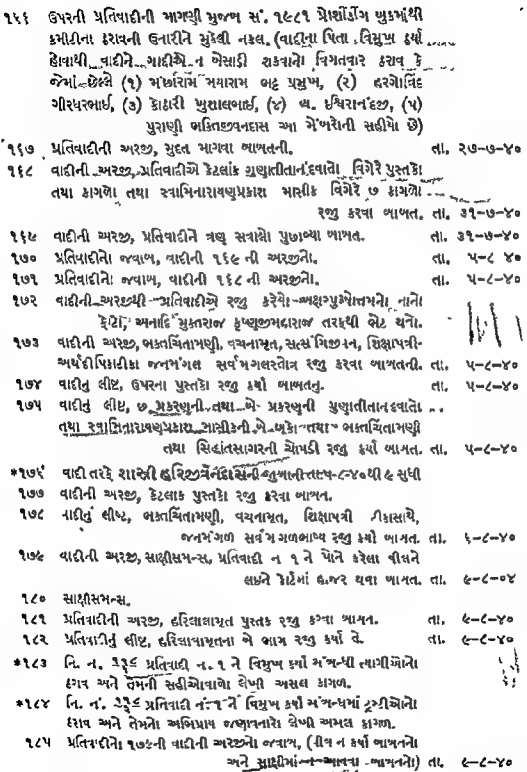 ૧૬૬ ઉપરની પ્રતિવાદીની માગણી મુજબ સં. ૧૯૮૧ પ્રોસીડીંગ બુકમાંથી
કમીટીના ઠરાવની ઉતારીને મુકેલી નકલ. (વાદીના પિતા વિમુખ ઠર્યા
હોવાથી વાદીને ગાદીએ ન બેસાડી શકવાનો વિગતવાર ઠરાવ કે
જેમાં છેલ્લે (૧) મંછારામ મયારામ ભટ્ટ પ્રમુખ, (૨) હરગોવિંદ
ગીરધરભાઈ, (૩) કોઠારી ખુશાલભાઈ, (૪) બ્ર. ઇશ્વિરાનંદજી, (૫)
પુરાણી ભક્તિજીવનદાસ આ મેંબરોની સહીયો છે)
*૧૬૭ પ્રતિવાદીની અરજી, મુદત માગવા બાબતની. તા. ૨૭-૭-૪૦
૧૬૮ વાદીની અરજી, પ્રતિવાદીએ કેટલાંક ગુણાતીતાનંદવાતો વિગેરે પુસ્તકો
તથા કાગળો તથા સ્વામિનારાયણપ્રકાશ માસીક વિગેરે ૭ કાગળો
રજી કરવા બાબત. તા. ૩૧-૭-૪૦
૧૬૯ વાદીની અરજી, પ્રતિવાદીને ત્રણ સવાલો પુછાવ્યા બાબત. તા. ૩૧-૭-૪૦
૧૭૦ પ્રતિવાદીનો જવાબ, વાદીની ૧૬૯ ની અરજીનો. તા. ૫-૮-૪૦
૧૭૧ પ્રતિવાદીનો જવાબ, વાદીની ૧૬૮ ની અરજીનો. તા. ૫-૮-૪૦
૧૭૨ વાદીની અરજીથી પ્રતિવાદીએ રજુ કરેલો અક્ષરપુરુષોત્તમનો નાનો
ફોટો, અનાદિ મુક્તરાજ કૃષ્ણજીમહારાજ તરફથી ભેટ થએલો.
૧૭૩ વાદીની અરજી, ભક્તચિંતામણી, વચનામૃત, સત્સંગિજીવન, શિક્ષાપત્રી-
અર્થદીપિકાટીકા જનમંગલ સર્વમંગલસ્તોત્ર રજુ કરવા બાબતની. તા. ૫-૮-૪૦
૧૭૪ વાદીનું લીષ્ટ, ઉપરના પુસ્તકો રજુ કર્યા બાબતનું. તા. ૫-૮-૪૦
૧૭૫ વાદીનું લીષ્ટ, છ પ્રકરણની તથા બે પ્રકરણની ગુણાતીતાનંદવાતો
તથા સ્વામિનારાયણપ્રકાશ માસીકની બે બુકો તથા ભક્તચિંતામણી
તથા સિદ્ધાંતસાગરની ચોપડી રજુ કર્યા બાબત. તા. ૫-૮-૪૦
*૧૭૬ વાદી તરફે શાસ્ત્રી હરિજીવનદાસની જુબાની તા. ૫-૮-૪૦થી ૯ સુધી
૧૭૭ વાદીની અરજી, કેટલાક પુસ્તકો રજુ કરવા બાબત.
૧૭૮ વાદીનું લીષ્ટ, ભક્તચિંતામણી, વચનામૃત, શિક્ષાપત્રી ટીકાસાથે,
જનમંગળ સર્વમંગળભાષ્ય રજુ કર્યા બાબત. તા. ૬-૮-૪૦
૧૭૯ વાદીની અરજી, સાક્ષીસમન્સ, પ્રતિવાદી ન ૧ ને પોતે કરેલા વીલને
લઇને કોર્ટમાં હાજર થવા બાબત. તા. ૯-૮-૦૪
૧૮૦ સાક્ષીસમન્સ.
૧૮૧ પ્રતિવાદીની અરજી, હરિલીલામૃત પુસ્તક રજુ કરવા બાબત. તા. ૯-૮-૪૦
૧૮૨ પ્રતિવાદીનું લીષ્ટ, હરિલીલામૃતના બે ભાગ રજુ કર્યા તે. તા. ૯-૮-૪૦
*૧૮૩ નિ. નં. પ્રતિવાદી નં. ૧ ને વિમુખ કર્યા સંબન્ધી ત્યાગીઓનો
ઠરાવ અને તેમની સહીઓવાળો લેખી અસલ કાગળ.
*૧૮૪ નિ. નં. પ્રતિવાદી નં. ૧ ને વિમુખ કર્યા સંબન્ધમાં ટ્રસ્ટીઓનો
ઠરાવ અને તેમનો અભિપ્રાય જણાવનારો લેખી અસલ કાગળ.
૧૮૫ પ્રતિવાદીનો ૧૭૯ની વાદીની અરજીનો જવાબ, (વીલ ન કર્યા બાબતનો
અને સાક્ષીમાં ન આવવા બાબતનો) તા. ૯-૮-૪૦